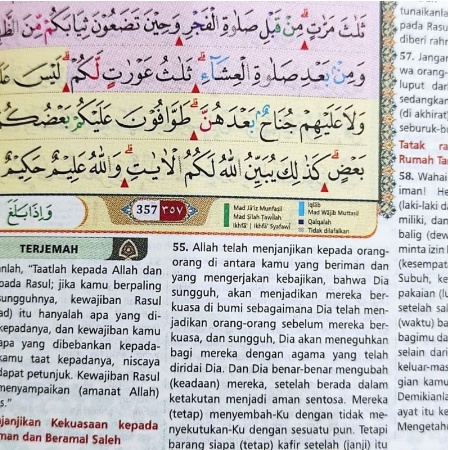 ثَلٰثَ مَرّٰتٍ مِنْ قَبْلِ صَلٰوةِ الْفَجْرِ وَحِيْنَ تَضَعُوْنَ ثِيَابَكُمْ مِّنَ
وَمِنْۢ بَعْدِ صَلٰوةِ الْعِشَاۤءِ ۗ ثَلٰثُ عَوْرٰتٍ لَّكُمْ ۗ لَيْسَ
وَلَا عَلَيْهِمْ جُنَاحٌۢ بَعْدَهُنَّ ۗ طَوَّافُوْنَ عَلَيْكُمْ بَعْضُكُمْ
بَعْضٍ ۗ كَذٰلِكَ يُبَيِّنُ اللّٰهُ لَكُمُ الْاٰيٰتِ ۗ وَاللّٰهُ عَلِيْمٌ حَكِيْمٌ
وَاِذَا بَلَغَ
357 ٣٥٧
Mad Jā'iz Munfasil
Mad Silah Tawilah
Ikhfā' | Ikhfā' Syafawī
Iqlāb
Mad Wājib Muttasil
Qalqalah
Tidak dilafalkan
TERJEMAH
anlah, “Taatlah kepada Allah dan
pada Rasul; jika kamu berpaling
sungguhnya, kewajiban Rasul
ad) itu hanyalah apa yang di-
kepadanya, dan kewajiban kamu
apa yang dibebankan kepada-
kamu taat kepadanya, niscaya
dapat petunjuk. Kewajiban Rasul
menyampaikan (amanat Allah)
s.”
njanjikan Kekuasaan kepada
man dan Beramal Saleh
55. Allah telah menjanjikan kepada orang-
orang di antara kamu yang beriman dan
yang mengerjakan kebajikan, bahwa Dia
sungguh, akan menjadikan mereka ber-
kuasa di bumi sebagaimana Dia telah men-
jadikan orang-orang sebelum mereka ber-
kuasa, dan sungguh, Dia akan meneguhkan
bagi mereka dengan agama yang telah
diridai Dia. Dan Dia benar-benar mengubah
(keadaan) mereka, setelah berada dalam
ketakutan menjadi aman sentosa. Mereka
(tetap) menyembah-Ku dengan tidak me-
nyekutukan-Ku dengan sesuatu pun. Tetapi
barang siapa (tetap) kafir setelah (janji) itu
tunaikanla
pada Rasu
diberi rahn
57. Jangan
wa orang-
luput dari
sedangkan
(di akhirat)
seburuk-bu
Tatak ra
Rumah Tan
58. Wahai
iman! He
(laki-laki da
miliki, dan
balig (dew
minta izin k
(kesempata
Subuh, ke
pakaian (lu
setelah sal
(waktu) ba
bagimu da
selain dari
keluar-mas
gian kamu
Demikianla
ayat itu ke
Mengetahu